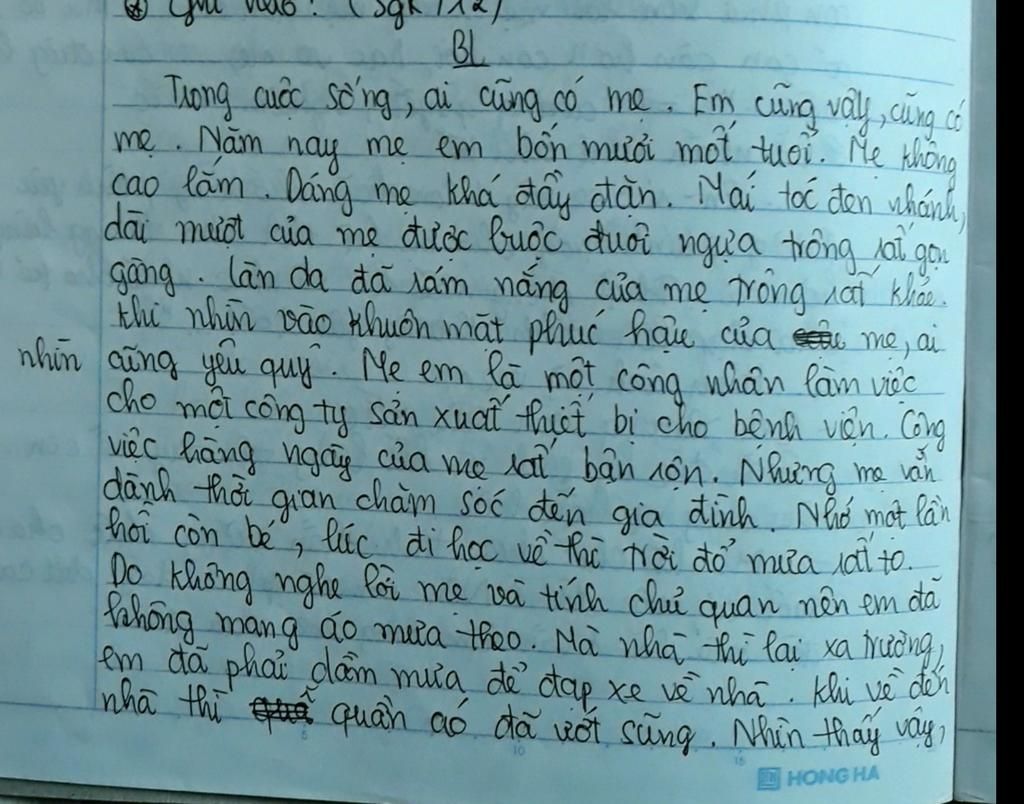 Ghi nhớ: (Sgk/12)
BL
Trong cuộc sống, ai cũng có mẹ. Em cũng vậy, cũng có
mẹ. Năm nay mẹ em bốn mươi mốt tuổi. Mẹ không
cao lắm. Dáng mẹ khá đầy đặn. Mái tóc đen nhánh,
dài mượt của mẹ được buộc đuôi ngựa trông rất gọn
gàng. Làn da đã rám nắng của mẹ trông rất khỏe.
Khi nhìn vào khuôn mặt phúc hậu của mẹ, ai
nhìn cũng yêu quý. Mẹ em là một công nhân làm việc
cho một công ty sản xuất thiết bị cho bệnh viện. Công
việc hằng ngày của mẹ rất bận rộn. Nhưng mẹ vẫn
dành thời gian chăm sóc đến gia đình. Nhớ một lần
hồi còn bé, lúc đi học về thì trời đổ mưa rất to.
Do không nghe lời mẹ và tính chủ quan nên em đã
không mang áo mưa theo. Mà nhà thì lại xa trường,
em đã phải dầm mưa để đạp xe về nhà. Khi về đến
nhà thì quần áo đã ướt sũng. Nhìn thấy vậy,
HONG HA